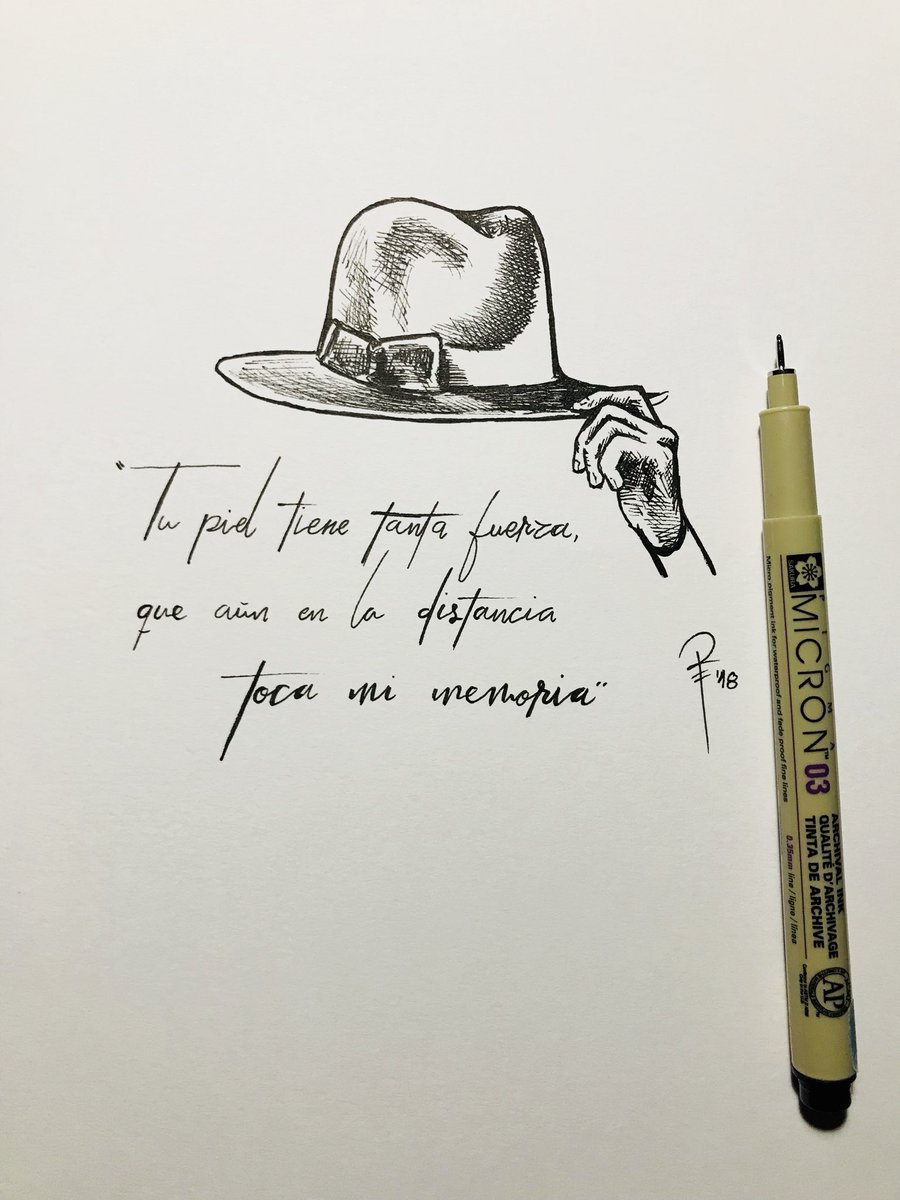 "Tu piel tiene tanta fuerza,
que aún en la distancia
toca mi memoria"
'18
PIGMA
MICRON™ 03
SAKURA
Micro pigment ink for waterproof and fade proof fine lines
0.35mm line / ligne / línea
ARCHIVAL INK
QUALITÉ D'ARCHIVAGE
TINTA DE ARCHIVE
AP